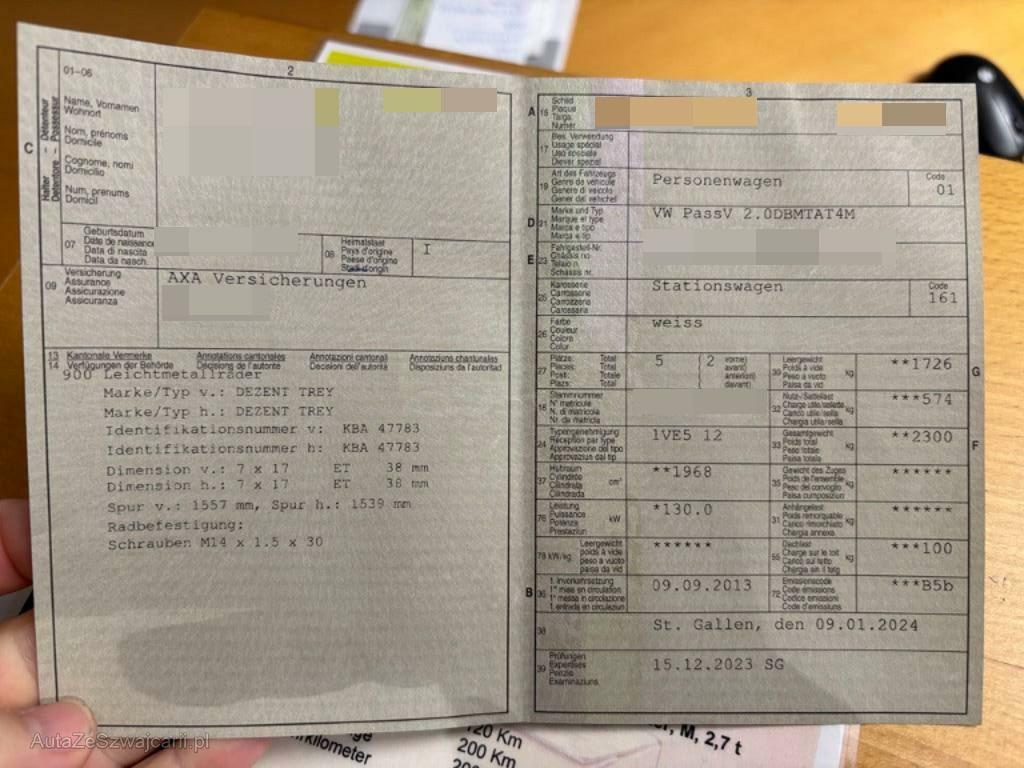 2
01-06
Name, Vornamen
Wohnort
Nom, prénoms
Domicile
Cognome, nomi
Domicilio
Num, prenums
Domicil
C
Halter - Détenteur
Detentore - Possessur
07
Geburtsdatum
Date de naissance
Data di nascita
Data da nasch.
08
Heimatstaat
Pays d'origine
Paese d'origine
Stadi d'origin
I
09
Versicherung
Assurance
Assicurazione
Assicuranza
AXA Versicherungen
13
14
Kantonale Vermerke
Verfügungen der Behörde
Annotations cantonales
Décisions de l'autorité
Annotazioni cantonali
Decisioni dell'autorità
Annotaziuns chantunalas
Disposiziuns da l'autoritad
900 Leichtmetallräder
Marke/Typ v.: DEZENT TREY
Marke/Typ h.: DEZENT TREY
Identifikationsnummer v: KBA 47783
Identifikationsnummer h: KBA 47783
Dimension v.: 7 x 17 ET 38 mm
Dimension h.: 7 x 17 ET 38 mm
Spur v.: 1557 mm, Spur h.: 1539 mm
Radbefestigung:
Schrauben M14 x 1.5 x 30
3
A
15
Schild
Plaque
Targa
Numer
17
Bes. Verwendung
Usage spécial
Uso speciale
Diever spezial
19
Art des Fahrzeugs
Genre de véhicule
Genere di veicolo
Gener dal vehichel
Personenwagen
Code
01
D
21
Marke und Typ
Marque et type
Marca e tipo
Marca e tip
VW PassV 2.0DBMTAT4M
E
23
Fahrgestell-Nr.
Châssis no
Telaio n.
Schassis nr.
25
Karosserie
Carrosserie
Carrozzeria
Carossaria
Stationswagen
Code
161
26
Farbe
Couleur
Colore
Colur
weiss
27
Plätze: Total
Places: Total
Posti: Totale
Plazs: Total
5
( 2
vorne)
avant)
anteriori)
davant)
30
Leergewicht
Poids à vide
Peso a vuoto
Paisa da vid
kg
**1726
G
18
Stammnummer
N° matricule
N. di matricola
Nr. da matricla
32
Nutz-/Sattellast
Charge utile/sellette
Carico utile/sella
Chargia utila/sella
kg
***574
24
Typengenehmigung
Réception par type
Approvazione del tipo
Approvaziun dal tip
1VE5 12
33
Gesamtgewicht
Poids total
Peso totale
Paisa totala
kg
**2300
F
37
Hubraum
Cylindrée
Cilindrata
Cilindrada
cm³
**1968
35
Gewicht des Zuges
Poids de l'ensemble
Peso del convoglio
Paisa cumposiziun
kg
******
76
Leistung
Puissance
Potenza
Prestaziun
kW
*130.0
31
Anhängelast
Poids remorquable
Carico rimorchiato
Chargia annexa
kg
******
78 kW/kg
Leergewicht
poids à vide
peso a vuoto
paisa da vid
******
55
Dachlast
Charge sur le toit
Carico sul tetto
Chargia sin il tetg
kg
***100
B
36
1. Inverkehrsetzung
1re mise en circulation
1a messa in circolazione
1. entrada en circulaziun
09.09.2013
72
Emissionscode
Code émissions
Codice emissioni
Code d'emissiuns
***B5b
38
St. Gallen, den 09.01.2024
39
Prüfungen
Expertises
Perizie
Examinaziuns
15.12.2023 SG
AutaZeSzwajcarii.pl
kilometer
120 Km
200 Km
M, 2,7 t